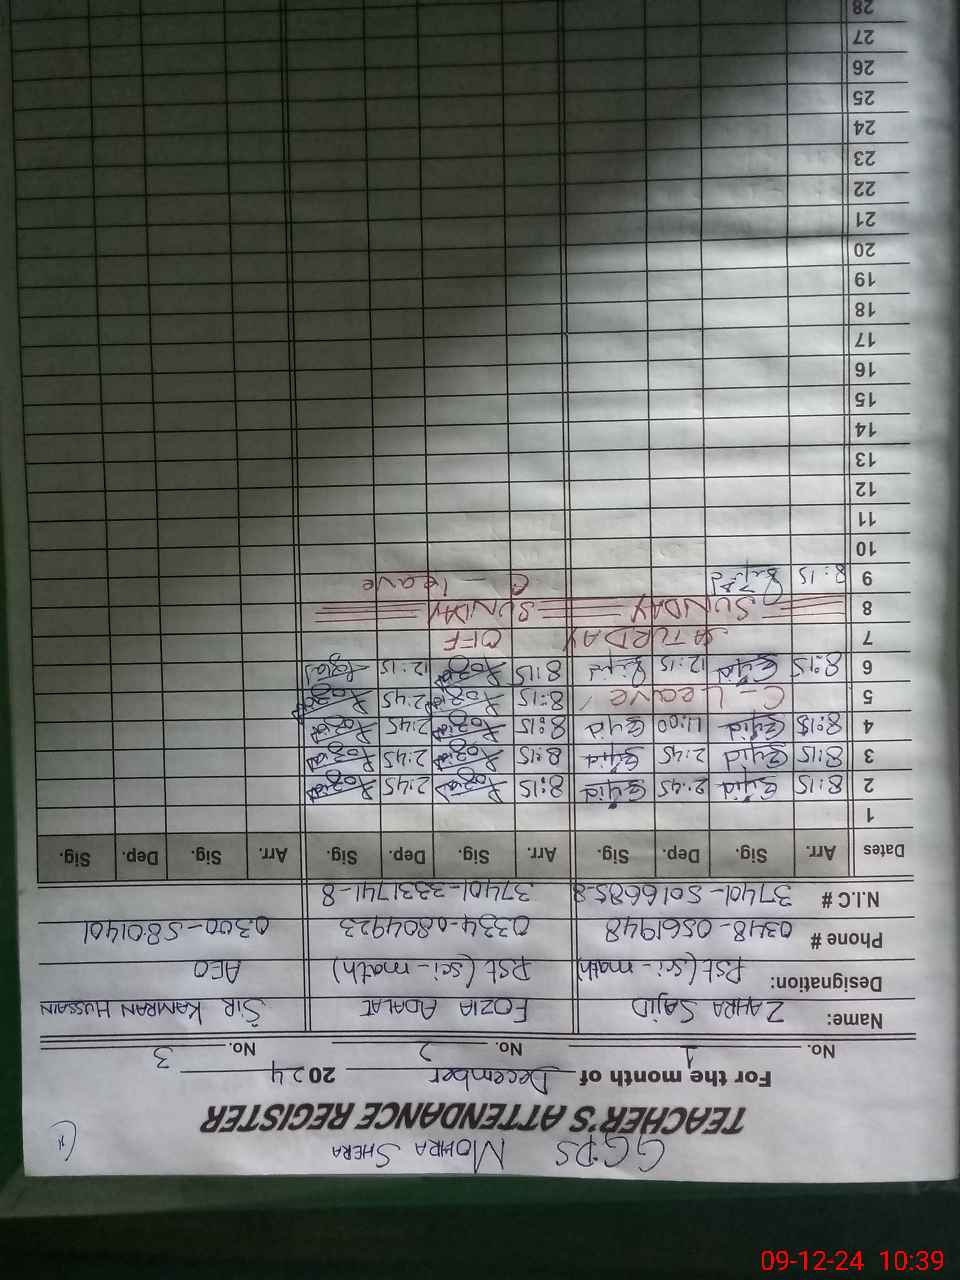 GGPS MOHRA SHERA
TEACHER'S ATTENDANCE REGISTER
For the month of December 2024
No. 1 No. 2 No. 3
Name: ZAHRA SAJID FOZIA ADALAT SIR KAMRAN HUSSAIN
Designation: PST (sci-math) PST (sci-math) AEO
Phone # 0348-0561948 0334-0804923 0300-5801401
N.I.C # 37401-5016685-8 37401-3331741-8
Dates Arr. Sig. Dep. Sig. Arr. Sig. Dep. Sig. Arr. Sig. Dep. Sig.
1
2 8:15 2:45 8:15 2:45
3 8:15 2:45 8:15 2:45
4 8:15 11:00 8:15 2:45
5 C-Leave 8:15 2:45
6 8:15 12:15 8:15 12:15
7 SATURDAY OFF
8 SUNDAY SUNDAY
9 8:15 C - leave
10
11
12
13
14
15
16
17
18
19
20
21
22
23
24
25
26
27
28
09-12-24 10:39